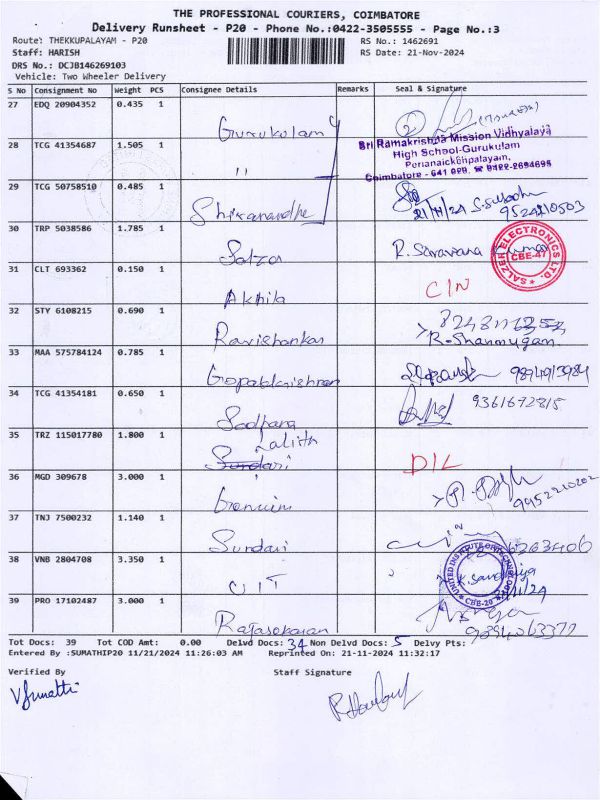 THE PROFESSIONAL COURIERS, COIMBATORE
Delivery Runsheet - P20 - Phone No.:0422-3505555 - Page No.:3
Route: THEKKUPALAYAM - P20 RS No.: 1462691
Staff: HARISH RS Date: 21-Nov-2024
DRS No.: DCJB146269103
Vehicle: Two Wheeler Delivery
S No Consignment No Weight PCS Consignee Details Remarks Seal & Signature
27 EDQ 20904352 0.435 1 Gurukolam
28 TCG 41354687 1.505 1 "
Sri Ramakrishna Mission Vidhyalaya
High School-Gurukulam
Perianaickenpalayam,
Coimbatore - 641 020. ☎ 0422-2694695
29 TCG 50758510 0.485 1 21/11/24 9524210503
30 TRP 5038586 1.785 1 Salzer R. Saravana Kumar
SALZER ELECTRONICS LTD. CBE-47
31 CLT 693362 0.150 1 Akhila CIN
32 STY 6108215 0.690 1 Ravishankar R-Shanmugam
33 MAA 575784124 0.785 1 Gopalakrishnan 9894913984
34 TCG 41354181 0.650 1 9361672815
35 TRZ 115017780 1.800 1 Lalith DIL
36 MGD 309678 3.000 1 9952210202
37 TNJ 7500232 1.140 1 Sundari
38 VNB 2804708 3.350 1 UIT
UNITED INSTITUTE OF TECHNOLOGY CBE-20
39 PRO 17102487 3.000 1 Rajasekaran
Tot Docs: 39 Tot COD Amt: 0.00 Delvd Docs: 34 Non Delvd Docs: 5 Delvy Pts:
Entered By :SUMATHIP20 11/21/2024 11:26:03 AM Reprinted On: 21-11-2024 11:32:17
Verified By Staff Signature